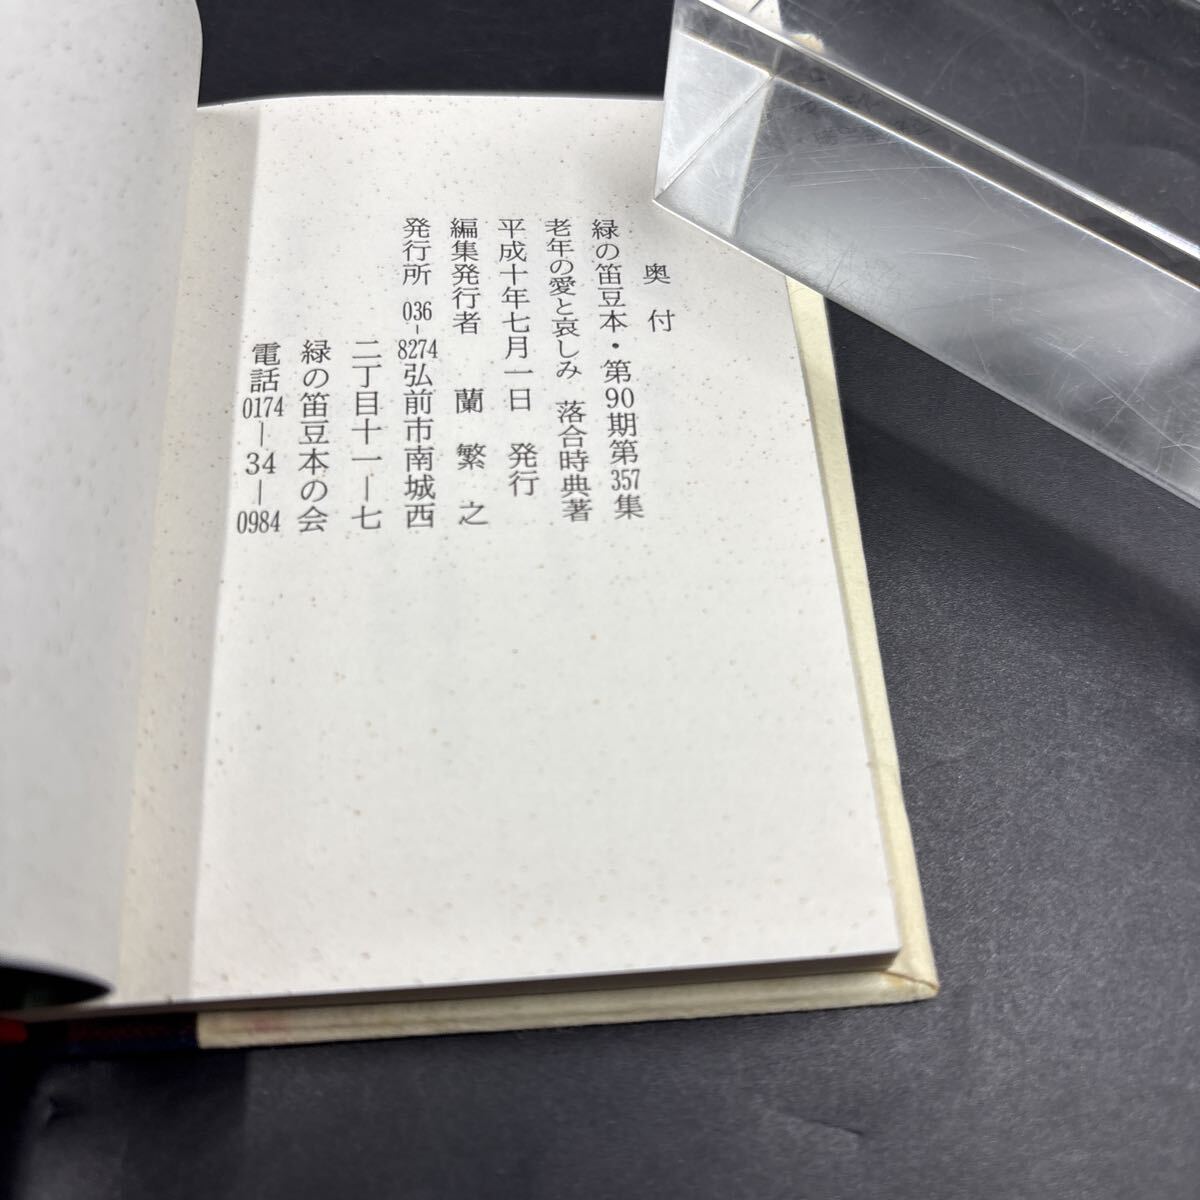 奥付
緑の笛豆本・第90期第357集
老年の愛と哀しみ　落合時典著
平成十年七月一日　発行
編集発行者　蘭繁之
発行所　036-8274弘前市南城西
二丁目十一―七
緑の笛豆本の会
電話0174―34―0984